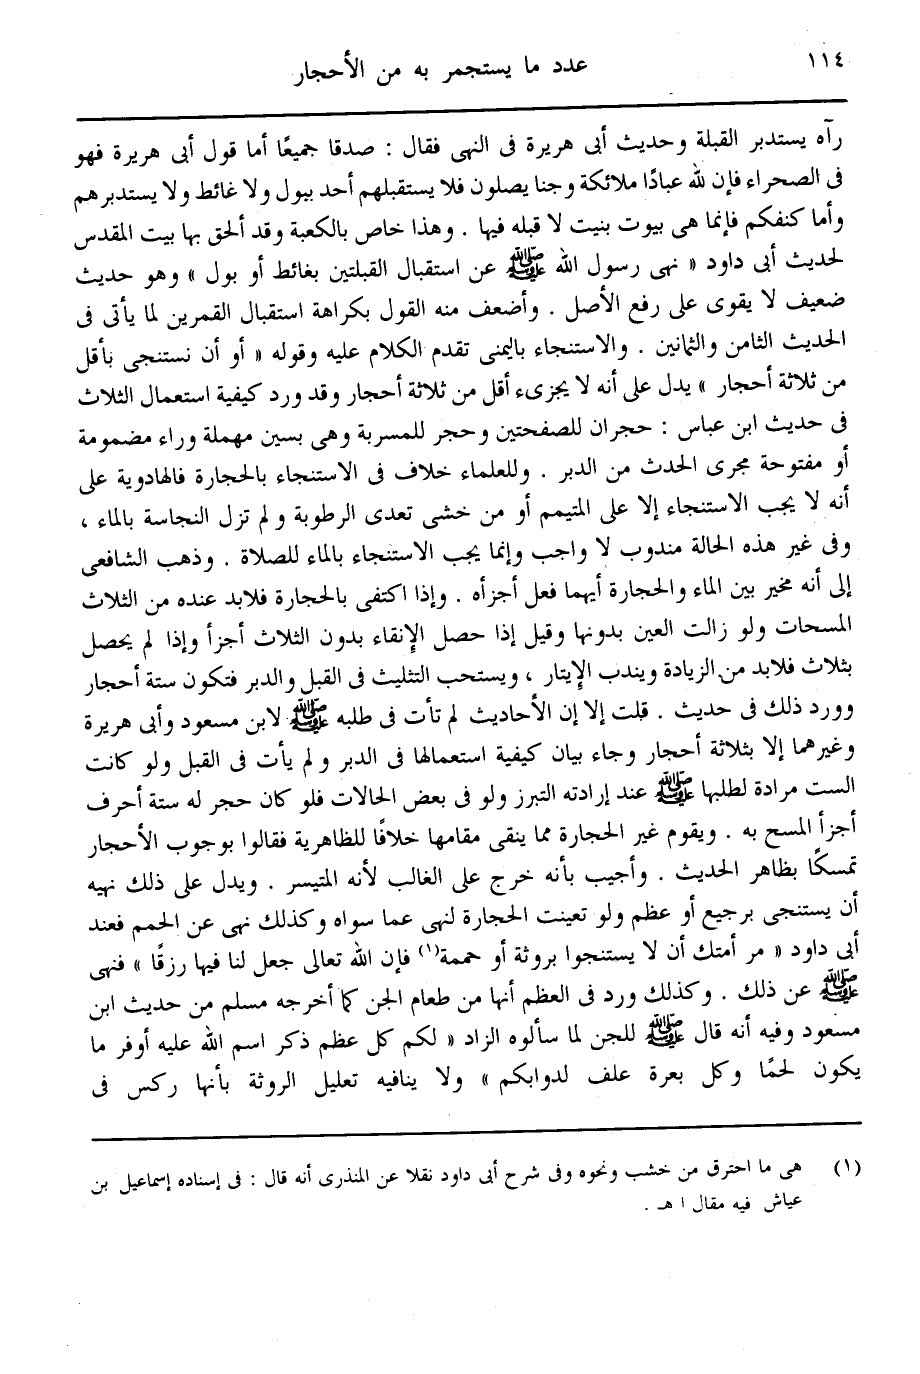 ١١٤
عدد ما يستجمر به من الأحجار
رآه يستدبر القبلة وحديث أبى هريرة فى النهى فقال : صدقا جميعًا أما قول أبى هريرة فهو
فى الصحراء فإن لله عبادًا ملائكة وجنا يصلون فلا يستقبلهم أحد ببول ولا غائط ولا يستدبرهم
وأما كنفكم فإنما هى بيوت بنيت لا قبله فيها . وهذا خاص بالكعبة وقد ألحق بها بيت المقدس
لحديث أبى داود « نهى رسول الله ﷺ عن استقبال القبلتين بغائط أو بول » وهو حديث
ضعيف لا يقوى على رفع الأصل . وأضعف منه القول بكراهة استقبال القمرين لما يأتى فى
الحديث الثامن والثمانين . والاستنجاء باليمنى تقدم الكلام عليه وقوله « أو أن نستنجى بأقل
من ثلاثة أحجار » يدل على أنه لا يجزىء أقل من ثلاثة أحجار وقد ورد كيفية استعمال الثلاث
فى حديث ابن عباس : حجران للصفحتين وحجر للمسربة وهى بسين مهملة وراء مضمومة
أو مفتوحة مجرى الحدث من الدبر . وللعلماء خلاف فى الاستنجاء بالحجارة فالهادوية على
أنه لا يجب الاستنجاء إلا على المتيمم أو من خشى تعدى الرطوبة ولم تزل النجاسة بالماء ،
وفى غير هذه الحالة مندوب لا واجب وإنما يجب الاستنجاء بالماء للصلاة . وذهب الشافعى
إلى أنه مخير بين الماء والحجارة أيهما فعل أجزأه . وإذا اكتفى بالحجارة فلابد عنده من الثلاث
المسحات ولو زالت العين بدونها وقيل إذا حصل الإنقاء بدون الثلاث أجزأ وإذا لم يحصل
بثلاث فلابد من الزيادة ويندب الإيتار ، ويستحب التثليث فى القبل والدبر فتكون ستة أحجار
وورد ذلك فى حديث . قلت إلا إن الأحاديث لم تأت فى طلبه ﷺ لابن مسعود وأبى هريرة
وغيرهما إلا بثلاثة أحجار وجاء بيان كيفية استعمالها فى الدبر ولم يأت فى القبل ولو كانت
الست مرادة لطلبها ﷺ عند إرادته التبرز ولو فى بعض الحالات فلو كان حجر له ستة أحرف
أجزأ المسح به . ويقوم غير الحجارة مما ينقى مقامها خلافًا للظاهرية فقالوا بوجوب الأحجار
تمسكًا بظاهر الحديث . وأجيب بأنه خرج على الغالب لأنه المتيسر . ويدل على ذلك نهيه
أن يستنجى برجيع أو عظم ولو تعينت الحجارة لنهى عما سواه وكذلك نهى عن الحمم فعند
أبى داود « مر أمتك أن لا يستنجوا بروثة أو حممة(١) فإن الله تعالى جعل لنا فيها رزقًا » فنهى
ﷺ عن ذلك . وكذلك ورد فى العظم أنها من طعام الجن كما أخرجه مسلم من حديث ابن
مسعود وفيه أنه قال ﷺ للجن لما سألوه الزاد « لكم كل عظم ذكر اسم الله عليه أوفر ما
يكون لحمًا وكل بعرة علف لدوابكم » ولا ينافيه تعليل الروثة بأنها ركس فى
(١) هى ما احترق من خشب ونحوه وفى شرح أبى داود نقلا عن المنذرى أنه قال : فى إسناده إسماعيل بن
عياش فيه مقال ا هـ .